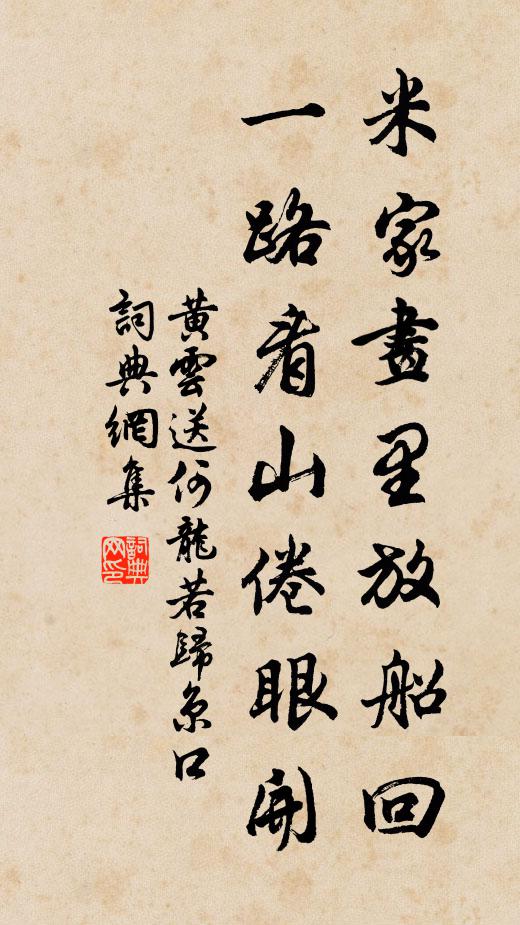 米家畫里放船回
一路看山倦眼開
黃雲送何龍若歸京口
詞典網集
詞典
网印